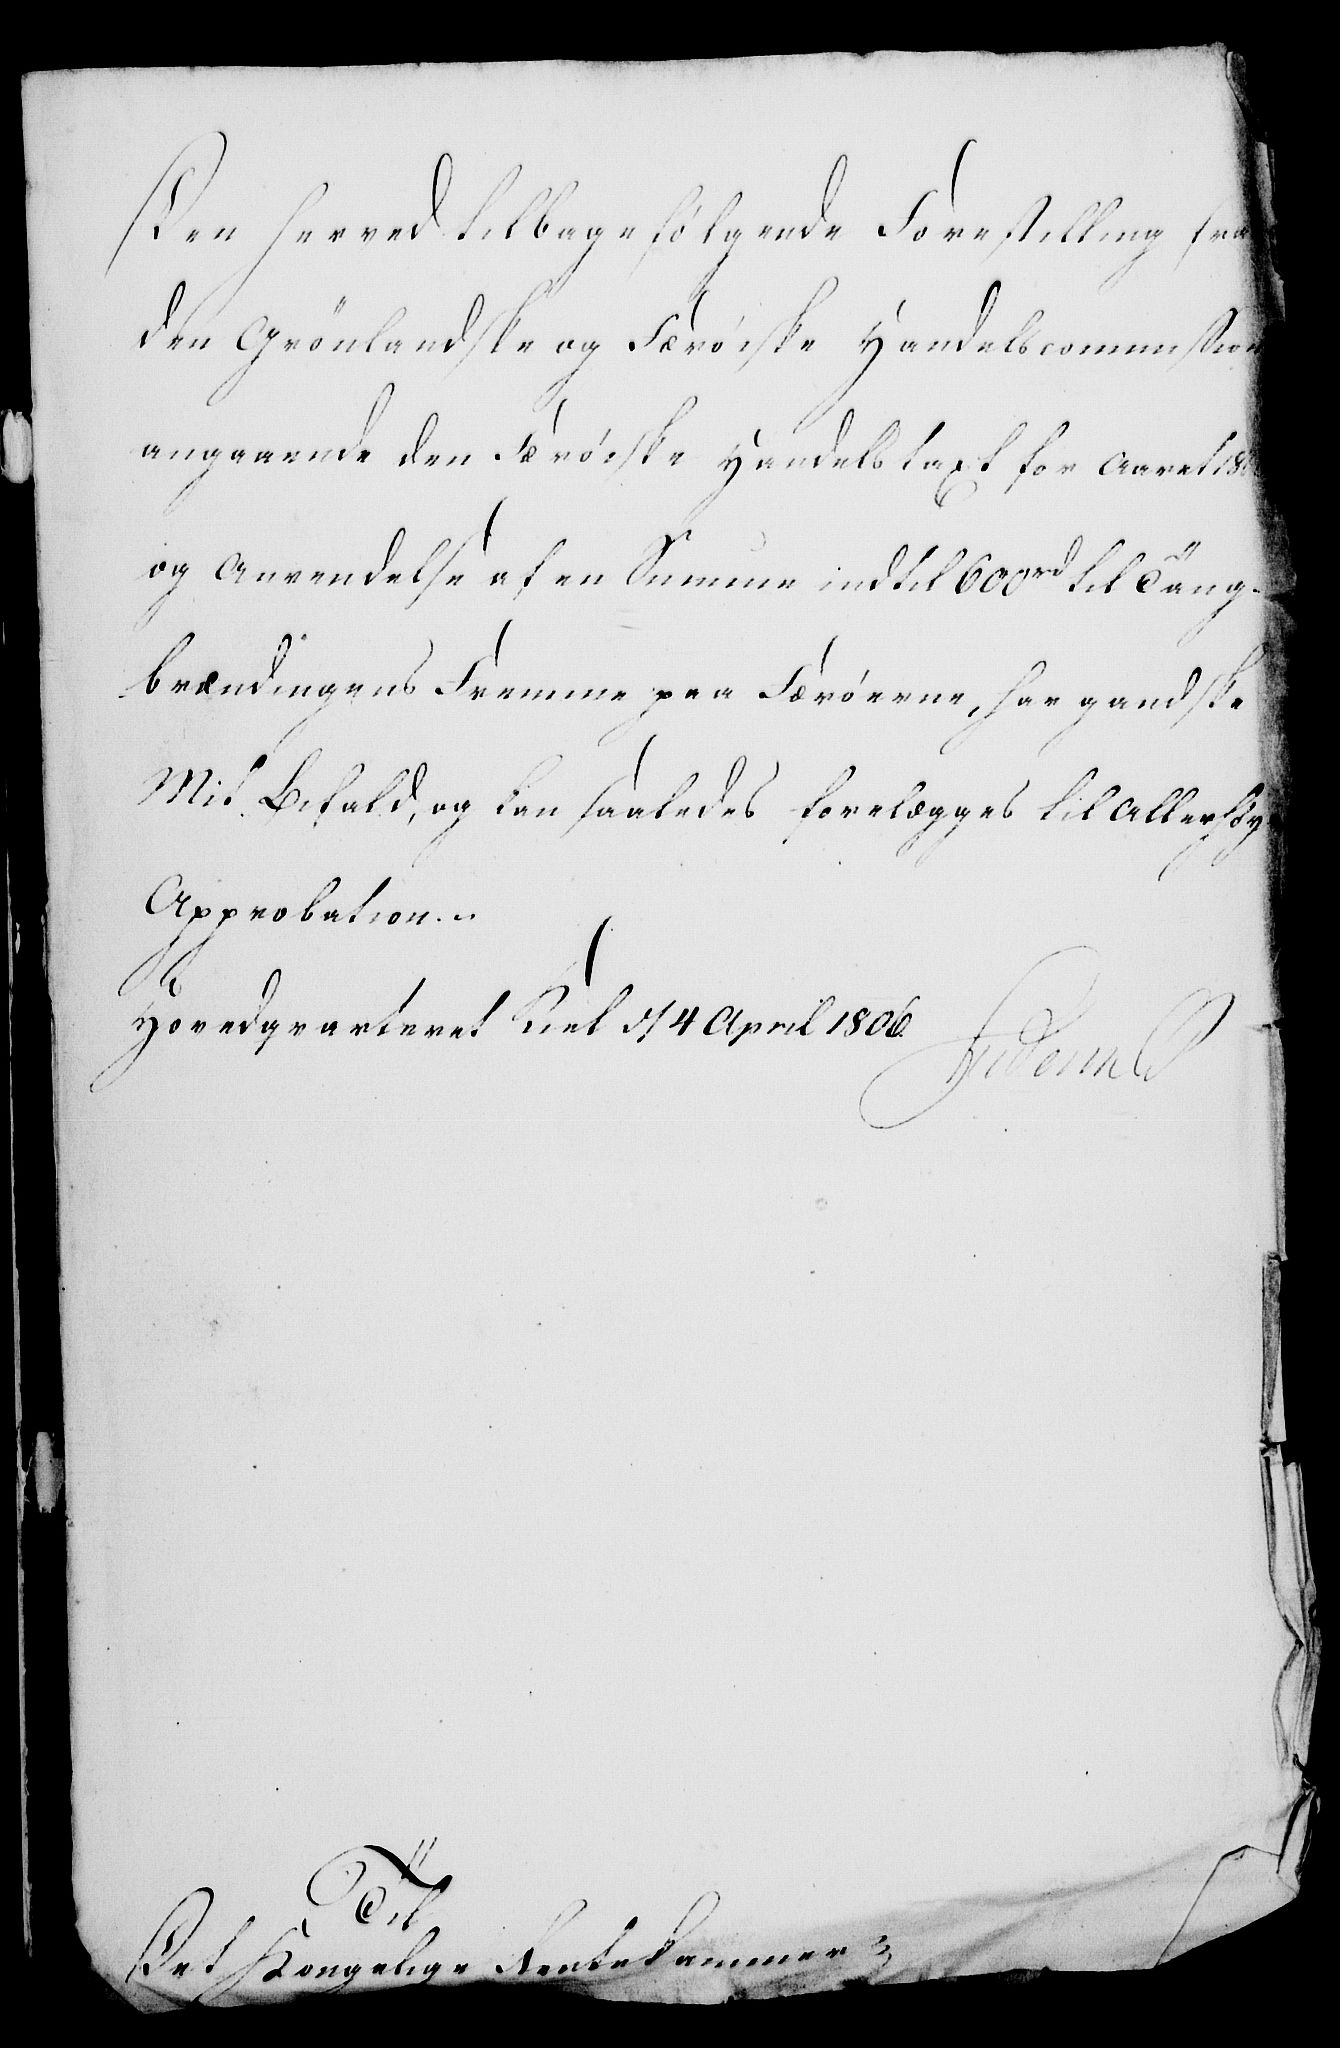 Den herved tilbagefølgende Forestilling fra
den Grönlandske og Færöiske Handelscommission
angaaende den Færöiske Handelstaxt for Aaret 18
og Anvendelse af en Summe indtil 600 rd til Tang-
brændingens Fremme paa Færöerne, har gandske
Mit Bifald, og kan saaledes forelægges til Allerhøy
Approbation.
Hovedqvarteret Kiel d 4 April 1806.
Friderich
Til
Det Kongelige Rentekammer